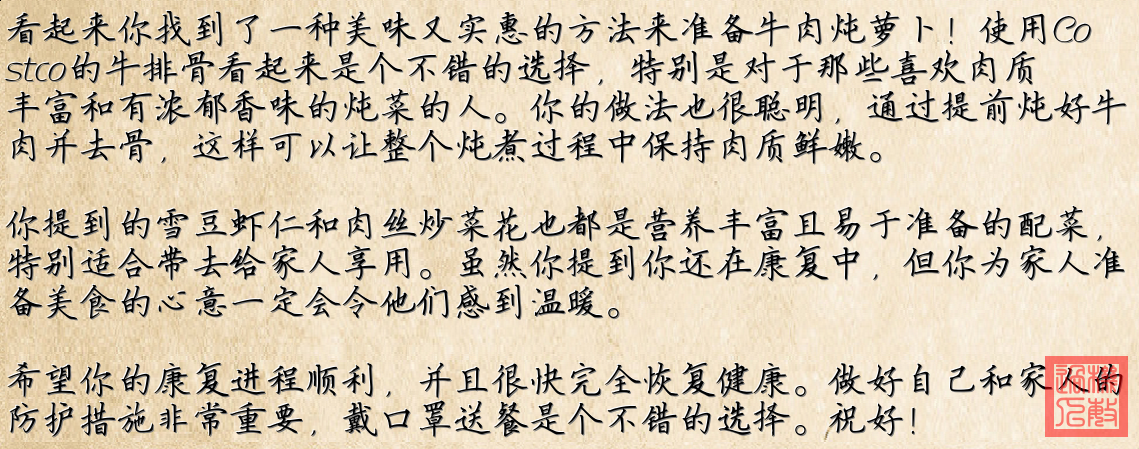 看起来你找到了一种美味又实惠的方法来准备牛肉炖萝卜！使用Co
stco的牛排骨看起来是个不错的选择，特别是对于那些喜欢肉质
丰富和有浓郁香味的炖菜的人。你的做法也很聪明，通过提前炖好牛
肉并去骨，这样可以让整个炖煮过程中保持肉质鲜嫩。
你提到的雪豆虾仁和肉丝炒菜花也都是营养丰富且易于准备的配菜，
特别适合带去给家人享用。虽然你提到你还在康复中，但你为家人准
备美食的心意一定会令他们感到温暖。
希望你的康复进程顺利，并且很快完全恢复健康。做好自己和家人的
防护措施非常重要，戴口罩送餐是个不错的选择。祝好！